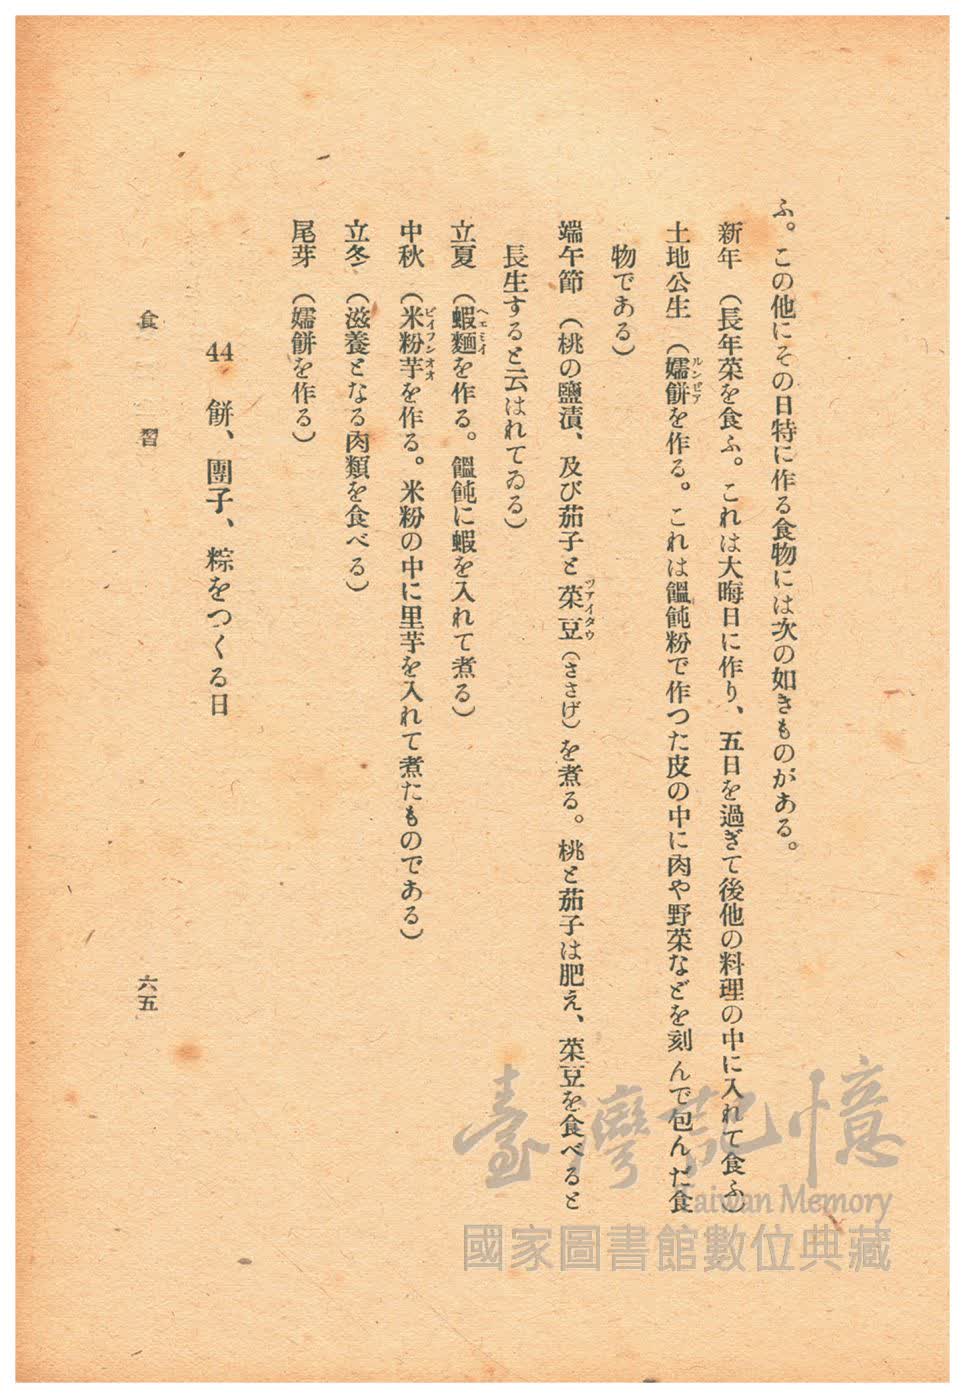 ふ。この他にその日特に作る食物には次の如きものがある。
新年　（長年菜を食ふ。これは大晦日に作り、五日を過ぎて後他の料理の中に入れて食ふ）
土地公生　（嬬餅を作る。これは饂飩粉で作つた皮の中に肉や野菜などを刻んで包んだ食
ルンピア
物である）
端午節　（桃の鹽漬、及び茄子と菜豆（ささげ）を煮る。桃と茄子は肥え、菜豆を食べると
ツアイタウ
長生すると云はれてゐる）
立夏　（蝦麵を作る。饂飩に蝦を入れて煮る）
ヘエミイ
中秋　（米粉芋を作る。米粉の中に里芋を入れて煮たものである）
ビイフンオオ
立冬　（滋養となる肉類を食べる）
尾芽　（嬬餅を作る）
44　餅、團子、粽をつくる日
食　習
六五
臺灣記憶
Taiwan Memory
國家圖書館數位典藏